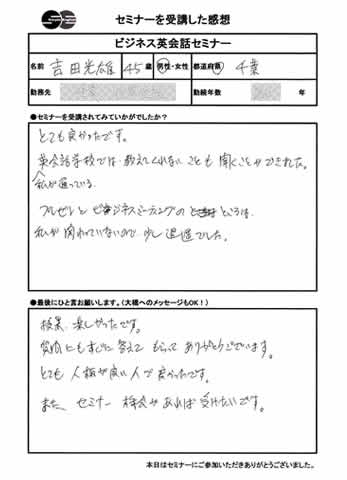 セミナーを受講した感想
ビジネス英会話セミナー
名前 吉田光雄 45歳 男性・女性 都道府県 千葉
勤務先 勤続年数 年
●セミナーを受講されてみていかがでしたか？
とても良かったです。
英会話学校では教えてくれないことも聞くことができれた。
私が通っている
プレゼンとビジネスミーティングのところは、
私が関わっていないので少し退屈でした。
●最後にひと言お願いします。（大橋へのメッセージもOK！）
楽しかったです。
質問にもすぐに答えてもらってありがとうございます。
とても人柄が良い人で良かったです。
また、セミナー機会があれば受けたいです。
本日はセミナーにご参加いただきありがとうございました。